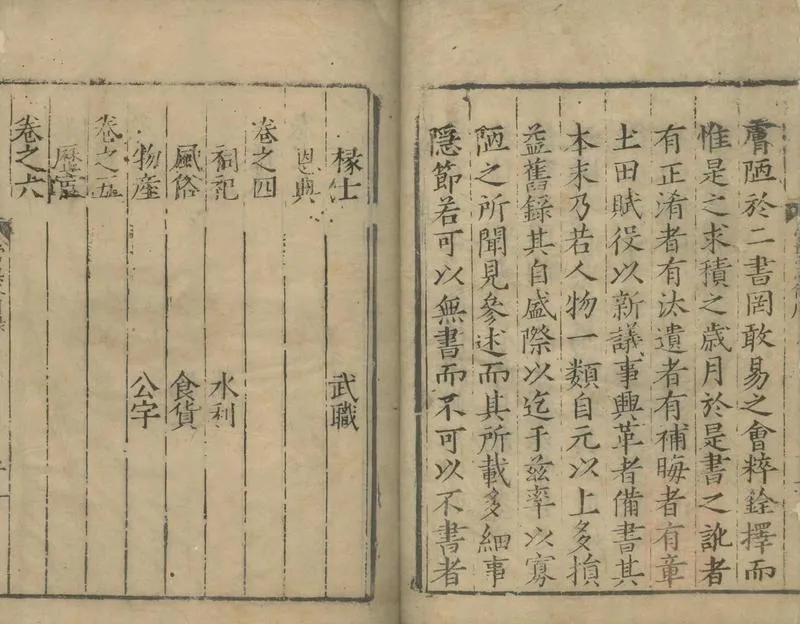 膚陋於二書罔敢易之會粹銓擇而
惟是之求積之歲月於是書之訛者
有正淆者有汰遺者有補晦者有章
土田賦役以新議事興革者備書其
本末乃若人物一類自元以上多損
益舊錄其自盛際以迄于兹率以寡
陋之所聞見參述而其所載多細事
隱節若可以無書而不可以不書者
椽士 武職
恩典
卷之四
祠祀 水利
風俗 食貨
物産 公字
卷之五
歷官
卷之六